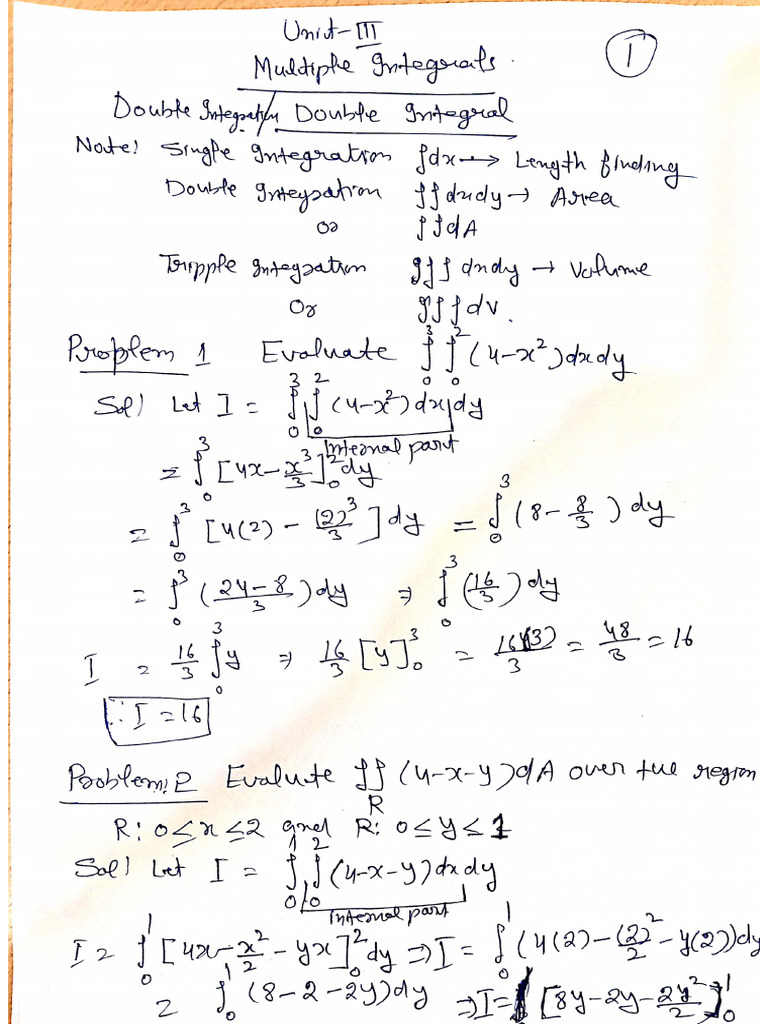 Unit-III
Multiple Integrals.
1
Double Integration/ Double Integral
Note! Single Integration ∫dx → Length finding
Double Integration ∫∫dxdy → Area
Or ∫∫dA
Tripple Integration ∫∫∫ dxdy → Volume
Or ∫∫∫dv.
Problem 1 Evaluate ∫₀³ ∫₀² (4-x²)dxdy
Sol! Let I = ∫₀³ ∫₀² (4-x²)dx dy
Internal part
= ∫₀³ [4x - x³/3]₀² dy
= ∫₀³ [4(2) - (2)³/3] dy = ∫₀³ (8 - 8/3) dy
= ∫₀³ (24-8/3) dy ⇒ ∫₀³ (16/3) dy
I = 16/3 ∫₀³ y ⇒ 16/3 [y]₀³ = 16(3)/3 = 48/3 = 16
∴ I = 16
Problem: 2 Evaluate ∫∫_R (4-x-y)dA over the region
R: 0≤x≤2 and R: 0≤y≤1
Sol! Let I = ∫₀¹ ∫₀² (4-x-y)dx dy
Internal part
I = ∫₀¹ [4x - x²/2 - yx]₀² dy ⇒ I = ∫₀¹ (4(2) - (2)²/2 - y(2))dy
= ∫₀¹ (8-2-2y)dy ⇒ I = [8y-2y-2y²/2]₀¹